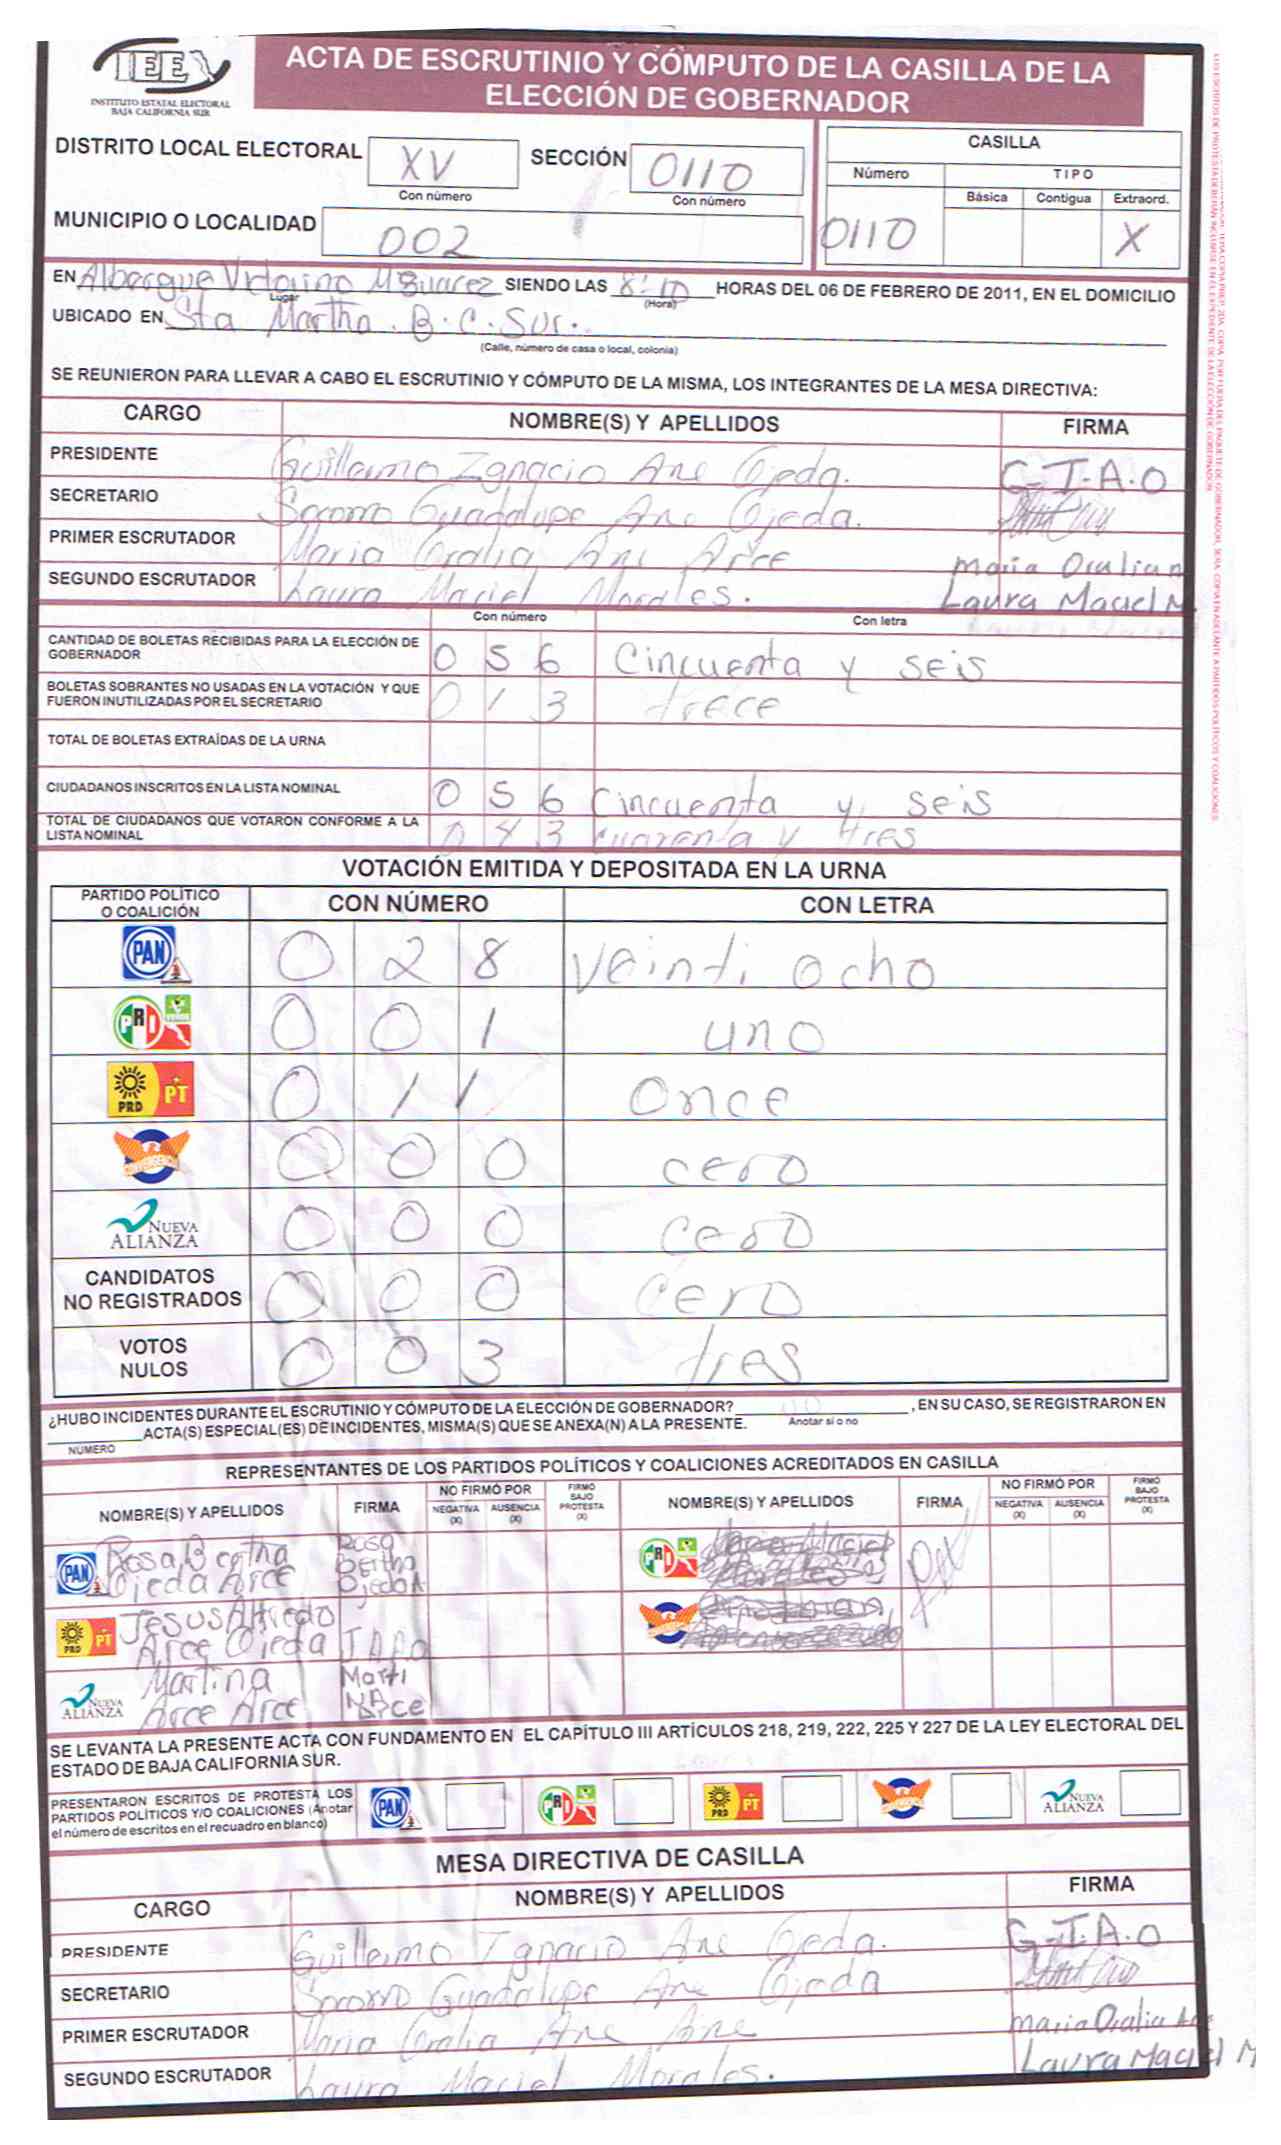 IEE
INSTITUTO ESTATAL ELECTORAL
BAJA CALIFORNIA SUR
ACTA DE ESCRUTINIO Y CÓMPUTO DE LA CASILLA DE LA
ELECCIÓN DE GOBERNADOR
DISTRITO LOCAL ELECTORAL XV SECCIÓN 0110
Con número Con número
MUNICIPIO O LOCALIDAD 002
CASILLA
Número TIPO
Básica Contigua Extraord.
0110 X
EN Albergue SIENDO LAS 8:10 HORAS DEL 06 DE FEBRERO DE 2011, EN EL DOMICILIO
Lugar (Hora)
UBICADO EN Sta Martha. B.C.Sur.
(Calle, número de casa o local, colonia)
SE REUNIERON PARA LLEVAR A CABO EL ESCRUTINIO Y CÓMPUTO DE LA MISMA, LOS INTEGRANTES DE LA MESA DIRECTIVA:
CARGO NOMBRE(S) Y APELLIDOS FIRMA
PRESIDENTE Guillermo Ignacio Arce Ojeda. G-I-A-O
SECRETARIO Socorro Guadalupe Arce Ojeda.
PRIMER ESCRUTADOR Maria Oralia Arce Arce Maria Oralia
SEGUNDO ESCRUTADOR Laura Maciel Morales. Laura Maciel M.
Con número Con letra
CANTIDAD DE BOLETAS RECIBIDAS PARA LA ELECCIÓN DE
GOBERNADOR 0 5 6 Cincuenta y seis
BOLETAS SOBRANTES NO USADAS EN LA VOTACIÓN Y QUE
FUERON INUTILIZADAS POR EL SECRETARIO 0 1 3 trece
TOTAL DE BOLETAS EXTRAÍDAS DE LA URNA
CIUDADANOS INSCRITOS EN LA LISTA NOMINAL 0 5 6 Cincuenta y seis
TOTAL DE CIUDADANOS QUE VOTARON CONFORME A LA
LISTA NOMINAL 0 4 3 cuarenta y tres
VOTACIÓN EMITIDA Y DEPOSITADA EN LA URNA
PARTIDO POLÍTICO
O COALICIÓN CON NÚMERO CON LETRA
PAN 0 2 8 Veinti ocho
PRI VERDE 0 0 1 uno
PRD PT 0 1 1 Once
CONVERGENCIA 0 0 0 cero
NUEVA ALIANZA 0 0 0 cero
CANDIDATOS
NO REGISTRADOS 0 0 0 cero
VOTOS
NULOS 0 0 3 tres
¿HUBO INCIDENTES DURANTE EL ESCRUTINIO Y CÓMPUTO DE LA ELECCIÓN DE GOBERNADOR? no , EN SU CASO, SE REGISTRARON EN
Anotar sí o no
ACTA(S) ESPECIAL(ES) DE INCIDENTES, MISMA(S) QUE SE ANEXA(N) A LA PRESENTE.
NUMERO
REPRESENTANTES DE LOS PARTIDOS POLÍTICOS Y COALICIONES ACREDITADOS EN CASILLA
NOMBRE(S) Y APELLIDOS FIRMA NO FIRMÓ POR NEGATIVA (X) AUSENCIA (X) FIRMÓ BAJO PROTESTA (X)
NOMBRE(S) Y APELLIDOS FIRMA NO FIRMÓ POR NEGATIVA (X) AUSENCIA (X) FIRMÓ BAJO PROTESTA (X)
PAN Rosa Bertha Rosa Bertha
Ojeda Arce Ojeda A
PRI
PRD PT Jesus Alfredo
Arce Ojeda J A A O
NUEVA ALIANZA Martina Marti
Arce Arce NA Arce
SE LEVANTA LA PRESENTE ACTA CON FUNDAMENTO EN EL CAPÍTULO III ARTÍCULOS 218, 219, 222, 225 Y 227 DE LA LEY ELECTORAL DEL
ESTADO DE BAJA CALIFORNIA SUR.
PRESENTARON ESCRITOS DE PROTESTA LOS
PARTIDOS POLÍTICOS Y/O COALICIONES (Anotar
el número de escritos en el recuadro en blanco)
PAN PRI PRD PT NUEVA ALIANZA
MESA DIRECTIVA DE CASILLA
CARGO NOMBRE(S) Y APELLIDOS FIRMA
PRESIDENTE Guillermo Ignacio Arce Ojeda. G-I-A-O
SECRETARIO Socorro Guadalupe Arce Ojeda
PRIMER ESCRUTADOR Maria Oralia Arce Arce Maria Oralia Arce
SEGUNDO ESCRUTADOR Laura Maciel Morales. Laura Maciel M